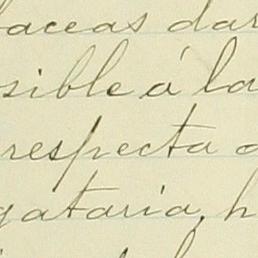 baceas dar
sible á la
respecta a
gataria, h